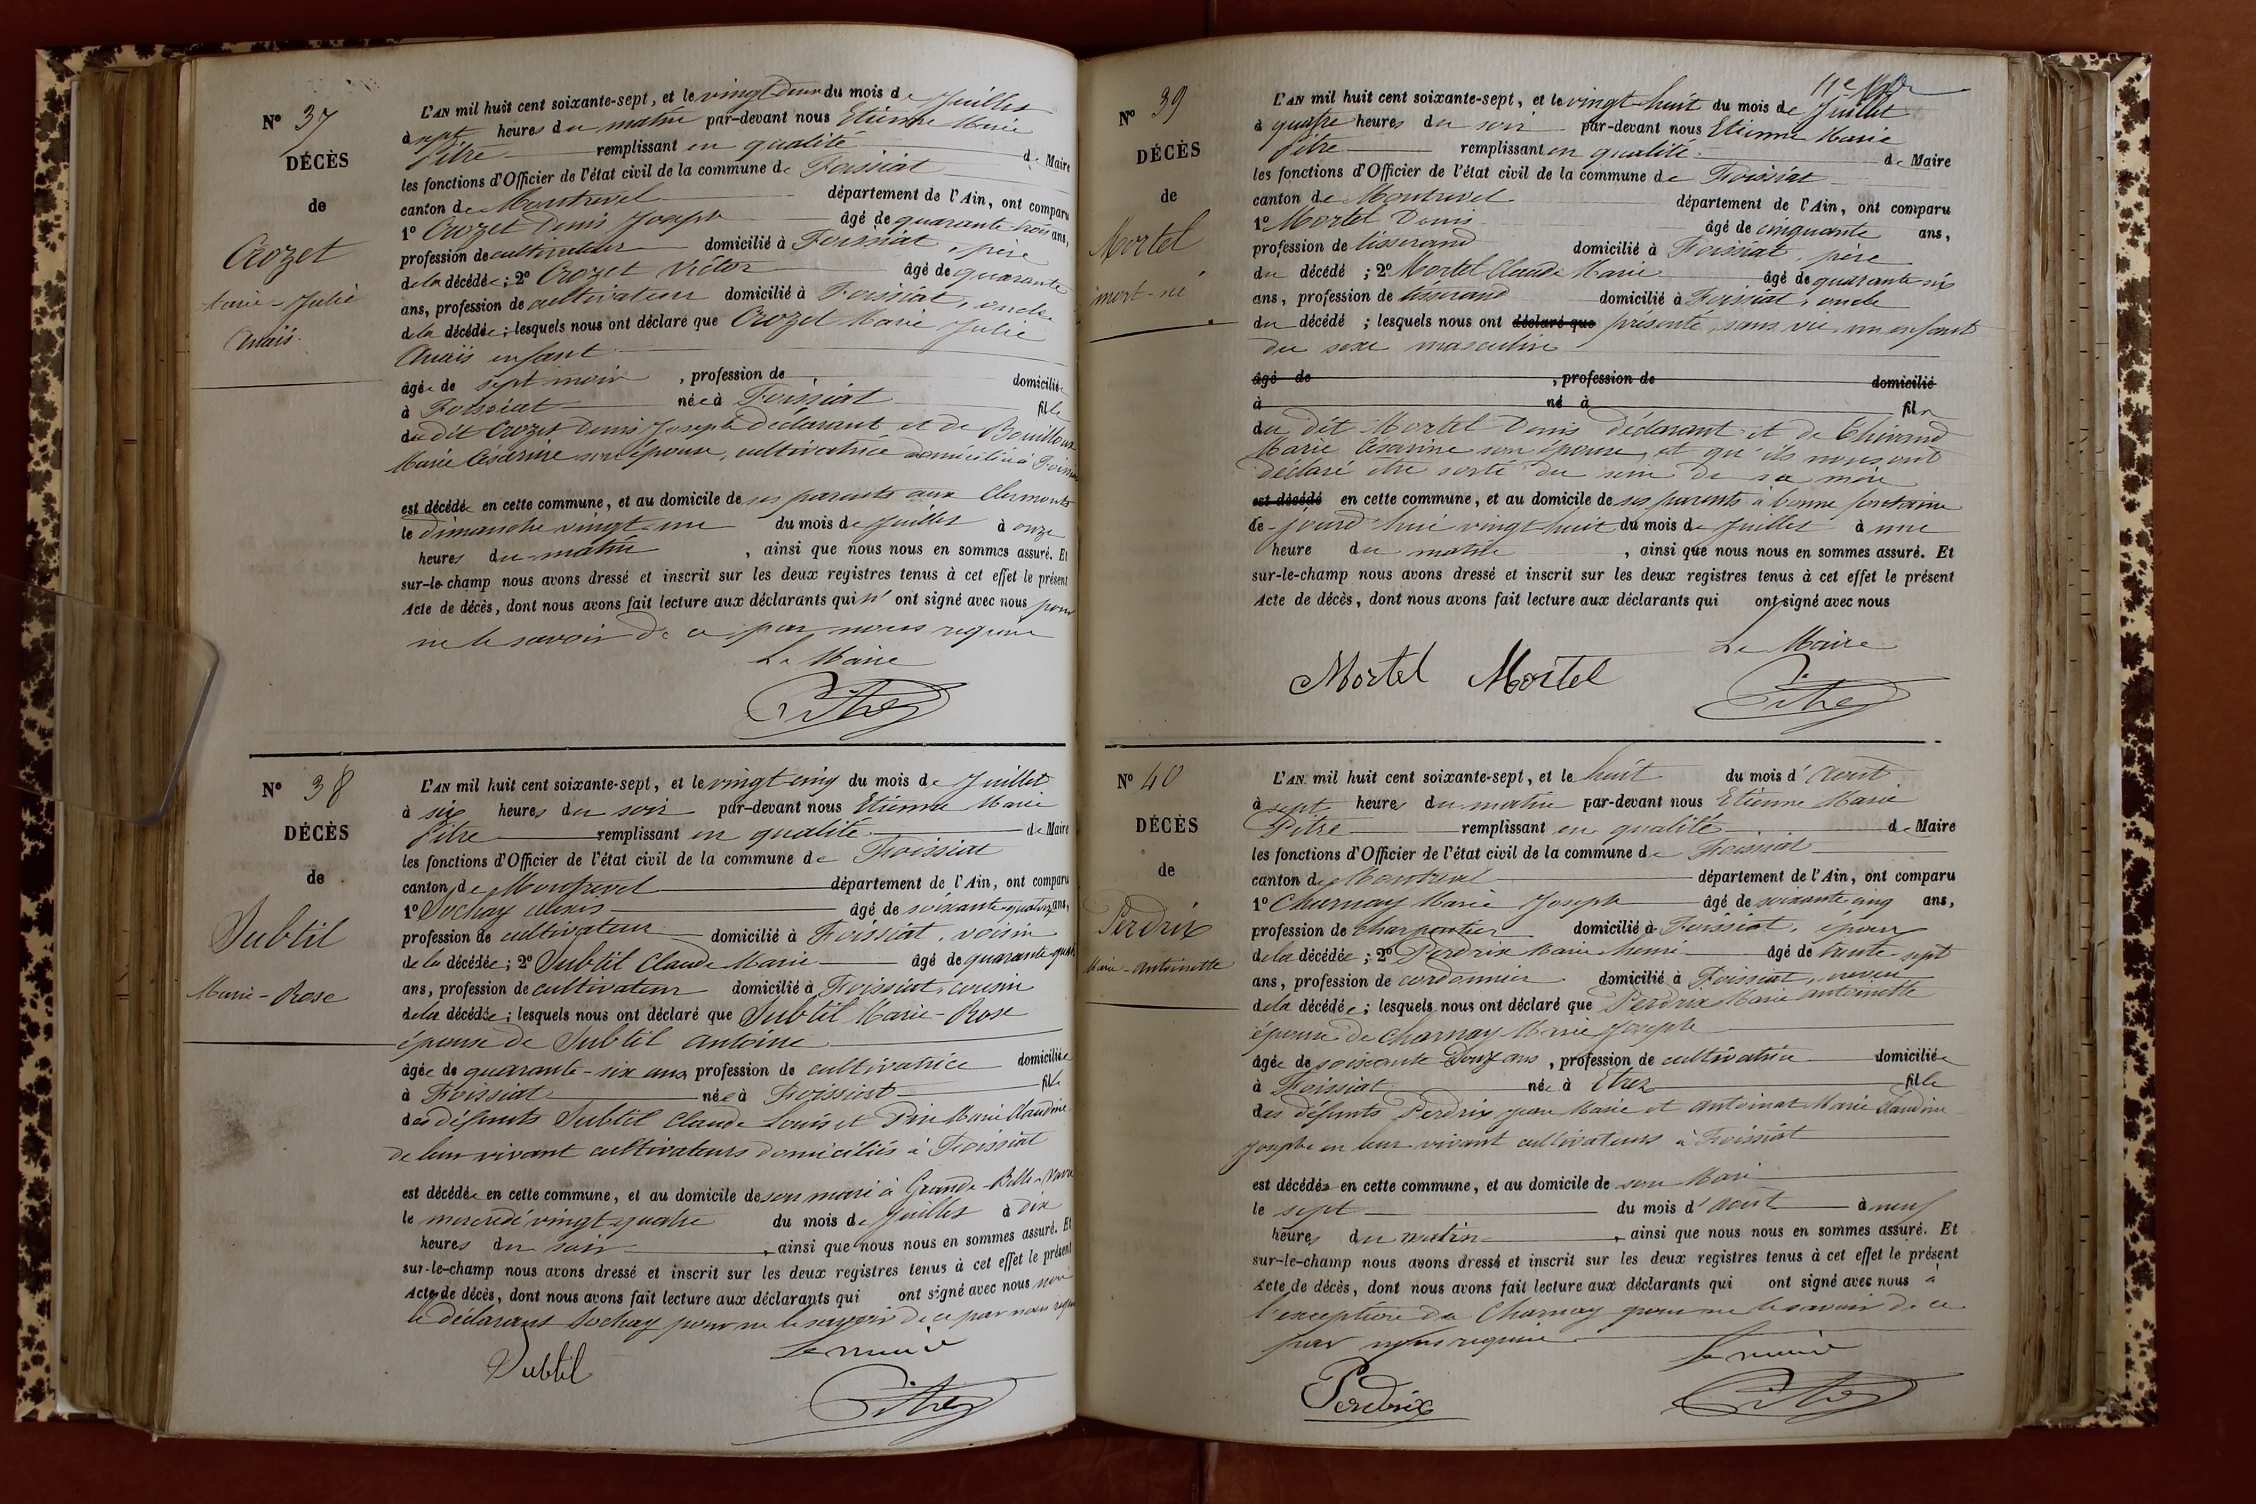 N° 37
DÉCÈS
de
Crozet
Marie-Julie
Anaïs
L'AN mil huit cent soixante-sept, et le vingt deux du mois de Juillet
à sept heures du matin par-devant nous Etienne Marie
Pitre remplissant en qualité de Maire
les fonctions d'Officier de l'état civil de la commune de Foissiat
canton de Montrevel département de l'Ain, ont comparu
1° Crozet Denis Joseph âgé de quarante trois ans,
profession de cultivateur domicilié à Foissiat, père
de la décédée; 2° Crozet Victor âgé de quarante
ans, profession de cultivateur domicilié à Foissiat, oncle
de la décédée; lesquels nous ont déclaré que Crozet Marie Julie
Anaïs enfant
âgée de sept mois, profession de domiciliée
à Foissiat née à Foissiat fille
du dit Crozet Denis Joseph déclarant et de Bouilloux
Marie Césarine son épouse, cultivatrice domiciliée à Foissiat
est décédée en cette commune, et au domicile de ses parents aux Clermonts
le dimanche vingt-un du mois de Juillet à onze
heures du matin, ainsi que nous nous en sommes assuré. Et
sur-le-champ nous avons dressé et inscrit sur les deux registres tenus à cet effet le présent
Acte de décès, dont nous avons fait lecture aux déclarants qui n'ont signé avec nous pour
ne le savoir de ce par nous requis
Le Maire
Pitre
N° 38
DÉCÈS
de
Subtil
Marie-Rose
L'AN mil huit cent soixante-sept, et le vingt cinq du mois de Juillet
à six heures du soir par-devant nous Etienne Marie
Pitre remplissant en qualité de Maire
les fonctions d'Officier de l'état civil de la commune de Foissiat
canton de Montrevel département de l'Ain, ont comparu
1° Sochay Alexis âgé de soixante-quatorze ans,
profession de cultivateur domicilié à Foissiat, voisin
de la décédée; 2° Subtil Claude Marie âgé de quarante
ans, profession de cultivateur domicilié à Foissiat, cousin
de la décédée; lesquels nous ont déclaré que Subtil Marie-Rose
épouse de Subtil Antoine
âgée de quarante-six ans profession de cultivatrice domiciliée
à Foissiat née à Foissiat fille
des défunts Subtil Claude Louis et Marie Claudine
de leur vivant cultivateurs domiciliés à Foissiat
est décédée en cette commune, et au domicile de son mari à Grande-Belle-
le mercredi vingt-quatre du mois de Juillet à dix
heures du soir, ainsi que nous nous en sommes assuré. Et
sur-le-champ nous avons dressé et inscrit sur les deux registres tenus à cet effet le présent
Acte de décès, dont nous avons fait lecture aux déclarants qui ont signé avec nous non
le déclarant Sochay pour ne le savoir de ce par nous requis
Le maire
Subtil
Pitre
N° 39
DÉCÈS
de
Mortel
mort-né
L'AN mil huit cent soixante-sept, et le vingt-huit du mois de Juillet
à quatre heures du soir par-devant nous Etienne Marie
Pitre remplissant en qualité de Maire
les fonctions d'Officier de l'état civil de la commune de Foissiat
canton de Montrevel département de l'Ain, ont comparu
1° Mortel Denis âgé de cinquante ans,
profession de tisserand domicilié à Foissiat, père
du décédé; 2° Mortel Claude Marie âgé de quarante six
ans, profession de tisserand domicilié à Foissiat, oncle
du décédé; lesquels nous ont déclaré que présenté, sans vie, un enfant
du sexe masculin
âgé de, profession de domicilié
à né à fils
du dit Mortel Denis déclarant et de
Marie Césarine son épouse, et qu'ils nous ont
déclaré être sorti du sein de sa mère
est décédé en cette commune, et au domicile de ses parents à bonne fontaine
le jourd'hui vingt huit du mois de Juillet à une
heure du matin, ainsi que nous nous en sommes assuré. Et
sur-le-champ nous avons dressé et inscrit sur les deux registres tenus à cet effet le présent
Acte de décès, dont nous avons fait lecture aux déclarants qui ont signé avec nous
Le Maire
Mortel Mortel
Pitre
N° 40
DÉCÈS
de
Perdrix
Marie-Antoinette
L'AN mil huit cent soixante-sept, et le huit du mois d'Aout
à sept heures du matin par-devant nous Etienne Marie
Pitre remplissant en qualité de Maire
les fonctions d'Officier de l'état civil de la commune de Foissiat
canton de Montrevel département de l'Ain, ont comparu
1° Charnay Marie Joseph âgé de soixante cinq ans,
profession de charpentier domicilié à Foissiat, époux
de la décédée; 2° Perdrix Marie Henri âgé de trente-sept
ans, profession de cordonnier domicilié à Foissiat, neveu
de la décédée; lesquels nous ont déclaré que Perdrix Marie Antoinette
épouse de Charnay Marie Joseph
âgée de soixante douze ans, profession de cultivatrice domiciliée
à Foissiat née à Etrez fille
des défunts Perdrix Jean Marie et Antoinat Marie Claudine
Josephe en leur vivant cultivateurs à Foissiat
est décédée en cette commune, et au domicile de son Mari
le sept du mois d'Aout à neuf
heures du matin, ainsi que nous nous en sommes assuré. Et
sur-le-champ nous avons dressé et inscrit sur les deux registres tenus à cet effet le présent
Acte de décès, dont nous avons fait lecture aux déclarants qui ont signé avec nous à
l'exception de Charnay pour ne le savoir de ce
par nous requis
Le maire
Perdrix
Pitre